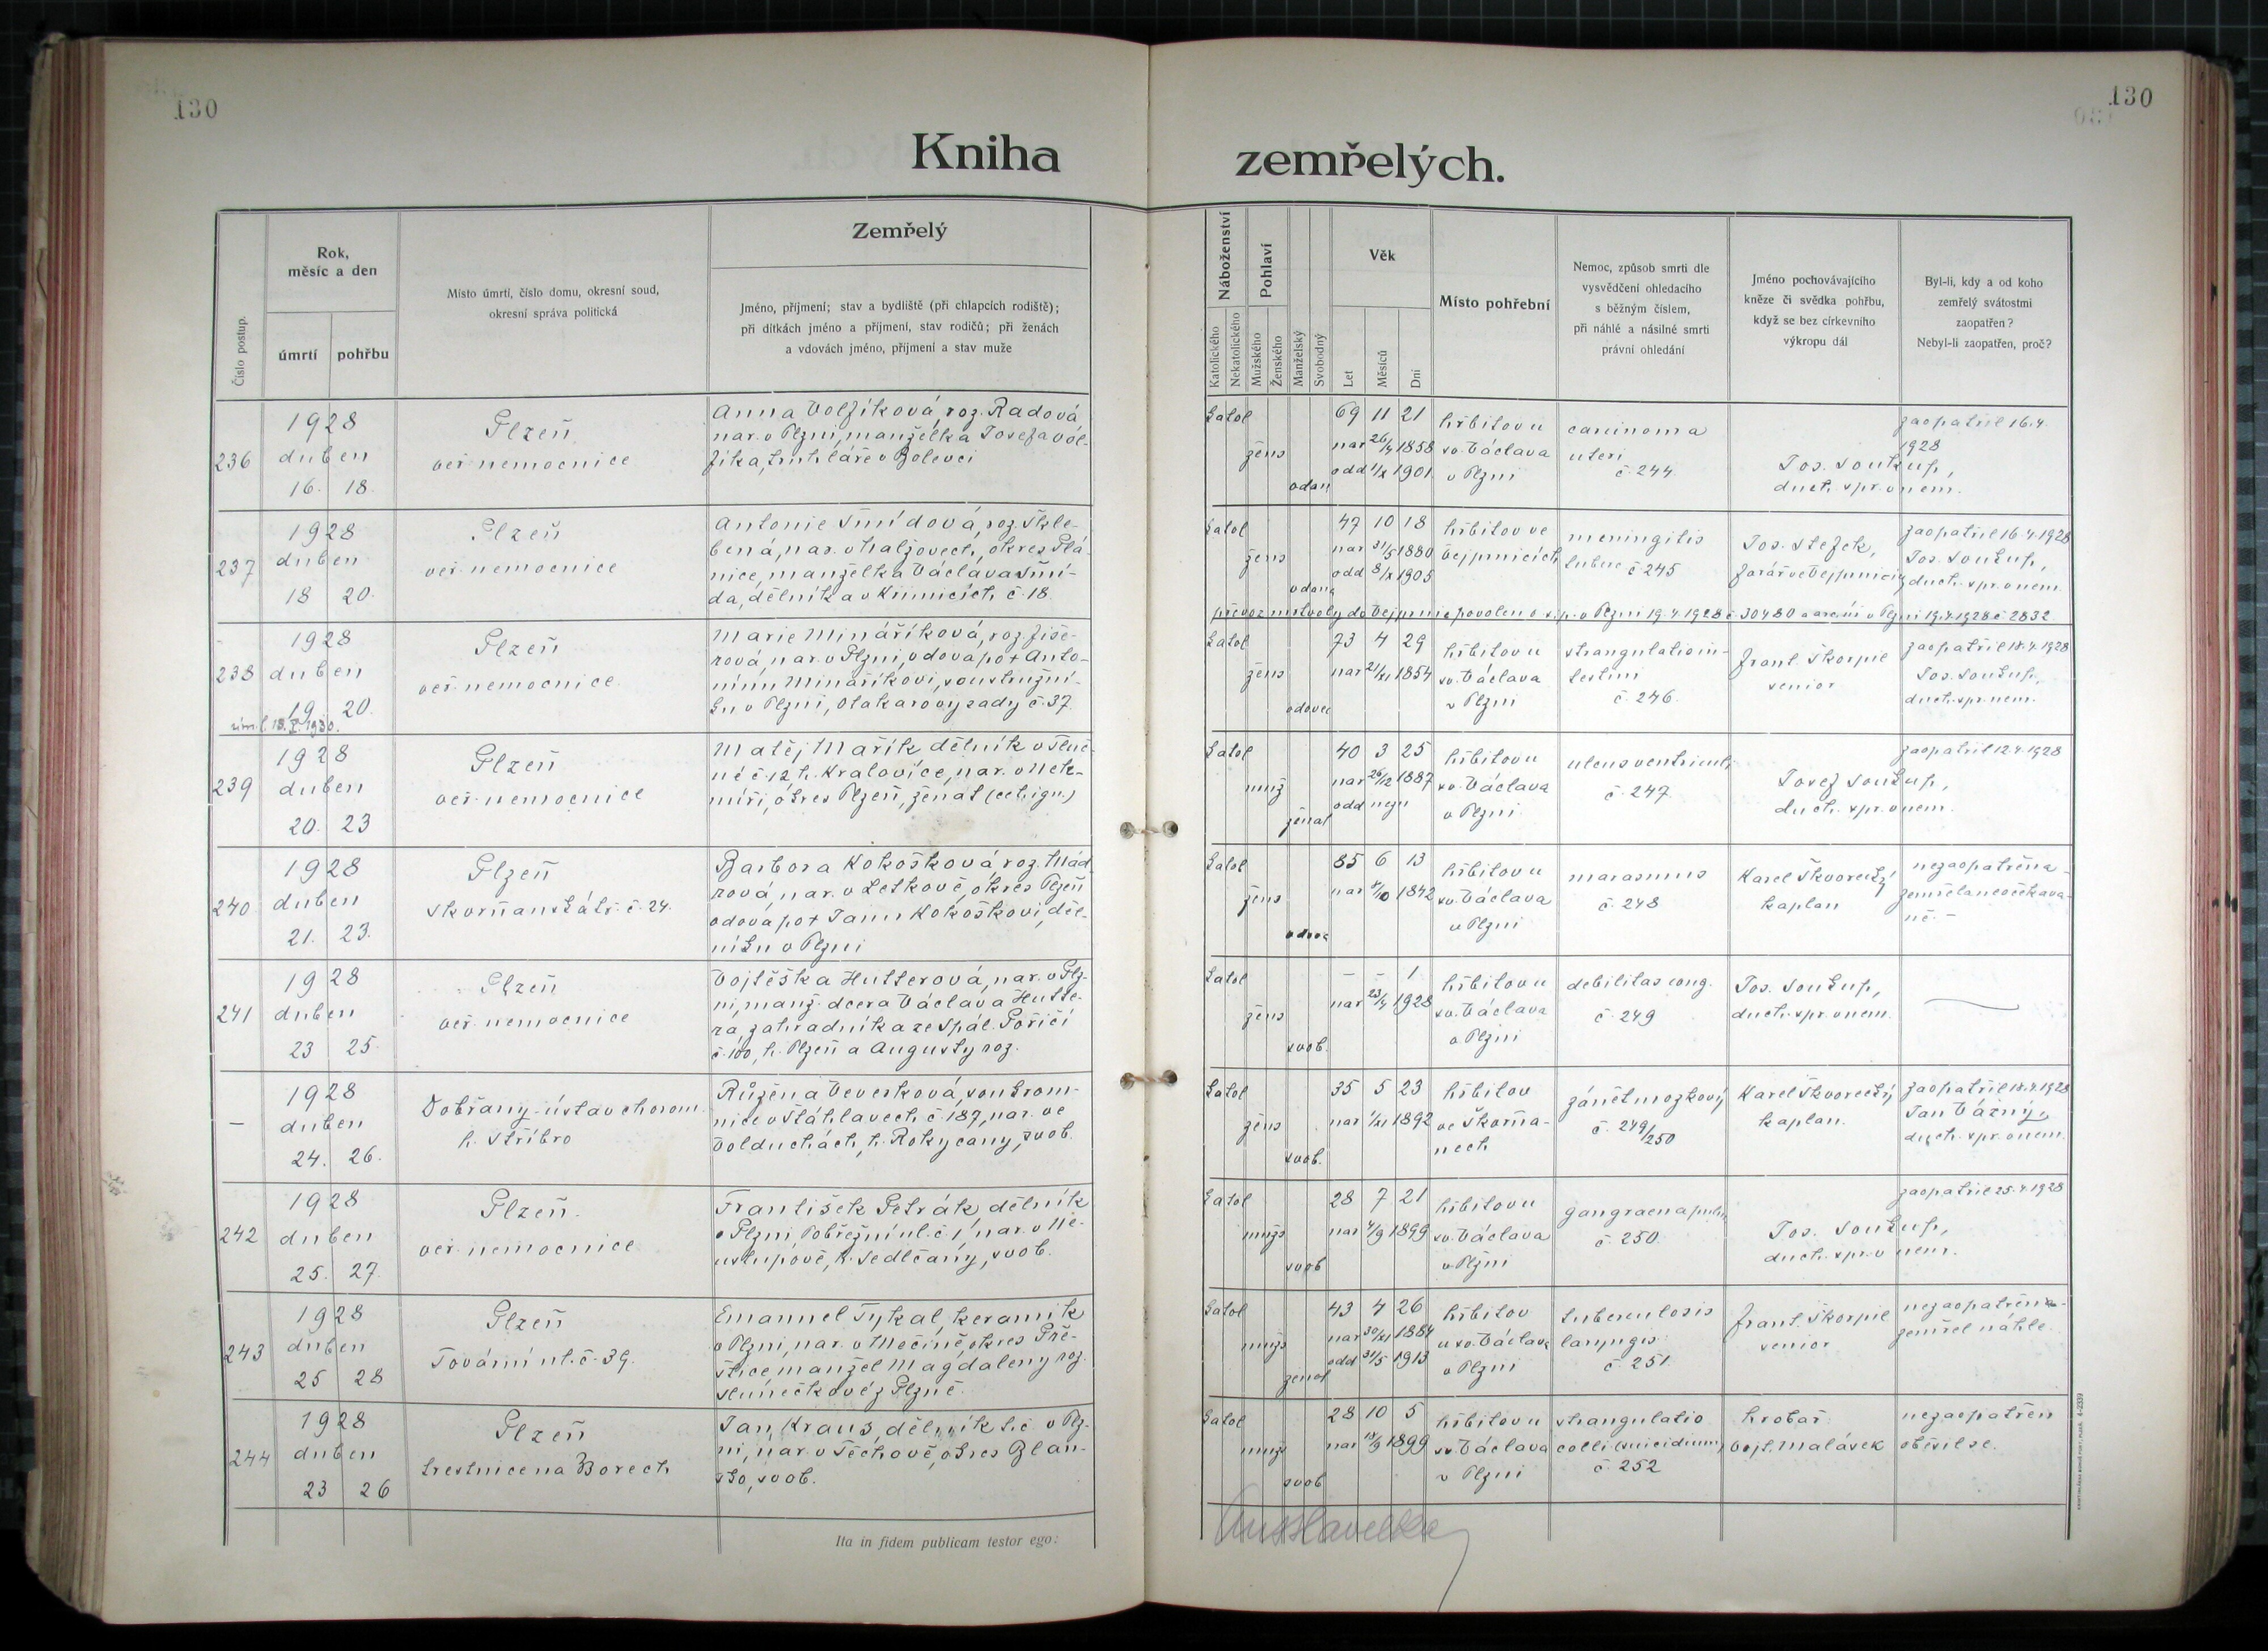 130
130
Kniha zemřelých.
Číslo postup.
Rok,
měsíc a den
úmrtí
pohřbu
Místo úmrtí, číslo domu, okresní soud,
okresní správa politická
Zemřelý
Jméno, příjmení; stav a bydliště (při chlapcích rodiště);
při dítkách jméno a příjmení, stav rodičů; při ženách
a vdovách jméno, příjmení a stav muže
Náboženství
Katolického
Nekatolického
Pohlaví
Mužského
Ženského
Manželský
Svobodný
Věk
Let
Měsíců
Dní
Místo pohřební
Nemoc, způsob smrti dle
vysvědčení ohledacího
s běžným číslem,
při náhlé a násilné smrti
právní ohledání
Jméno pochovávajícího
kněze či svědka pohřbu,
když se bez církevního
výkropu dál
Byl-li, kdy a od koho
zemřelý svátostmi
zaopatřen?
Nebyl-li zaopatřen, proč?
236
1928
duben
16. 18.
Plzeň
veř. nemocnice
Anna Volfíková, roz. Radová
nar. v Plzni, manželka Josefa Vol-
fíka, truhláře v Bolevci
katol
žens
vdan
69 11 21
nar 26/4 1858
odd 1/X 1901
hřbitov u
sv. Václava
v Plzni
carcinoma
uteri
č. 244.
Jos. Soukup,
duch. spr. v nem.
zaopatřil 16.4.
1928
237
1928
duben
18 20.
Plzeň
veř. nemocnice
Antonie Šmídová, roz. Skle-
bená, nar. v Habjovech, okres Plá-
nice, manželka Václava Šmí-
da, dělníka v Křimicích č. 18.
katol
žens
vdaná
47 10 18
nar 31/5 1880
odd 8/X 1905
hřbitov ve
Vejprnicích
meningitis
tubuc č 245
Jos. Stefek,
farář ve Vejprnicích
zaopatřil 16.4.1928
Jos. Soukup,
duch. spr. v nem.
převoz mrtvoly do Vejprnic povolen o. s. p. v Plzni 19.4.1928 č 30480 a arc. úř. v Plzni 19.4.1928 č. 2832
238
1928
duben
19. 20.
Plzeň
veř. nemocnice
Marie Minaříková, roz. Fiše-
rová, nar. v Plzni, vdova po + Anto-
nínu Minaříkovi, soustružní-
ku v Plzni, Otakarovy sady č. 37.
katol
žens
vdovec
73 4 29
nar 21/XI 1854
hřbitov u
sv. Václava
v Plzni
strangulatio in-
testini
č. 246.
Frant. Škorpil
senior
zaopatřil 18.4.1928
Jos. Soukup,
duch. spr. nem.
239
1928
duben
20. 23
Plzeň
veř. nemocnice
Matěj Mařík dělník v Tluc-
né č. 12 h. Kralovice, nar. v Nek-
míři, okres Plzeň, ženat (cet. ign.)
katol
muž
ženat
40 3 25
nar 26/12 1887
odd nezn
hřbitov u
sv. Václava
v Plzni
ulcus ventriculi
č. 247.
Josef Soukup,
duch. spr. v nem.
zaopatřil 12.4.1928
240
1928
duben
21. 23.
Plzeň
Skvrňanská tř. č. 24.
Barbora Kokošková roz. Mád-
rová, nar. v Letkově, okres Plzeň
vdova po + Janu Kokoškovi, děl-
níku v Plzni
katol
žens
vdova
85 6 13
nar 8/10 1842
hřbitov u
sv. Václava
v Plzni
marasmus
č. 248
Karel Škvorecký
kaplan
nezaopatřena
zemřela neočekava-
ně. –
241
1928
duben
23 25.
Plzeň
veř. nemocnice
Vojtěška Hutterová, nar. v Plz-
ni, manž. dcera Václava Hutte-
ra, zahradníka ze Spál. Poříčí
č. 100, h. Plzeň a Augusty roz.
katol
žens
svob.
– – 1
nar 23/4 1928
hřbitov u
sv. Václava
v Plzni
debilitas cong.
č. 249
Jos. Soukup,
duch. spr. v nem.
–
1928
duben
24. 26.
Dobřany – ústav chorom.
h. Stříbro
Růžena Veverková, soukrom-
nice v Šťáhlavech č. 187, nar. ve
Volduchách, h. Rokycany, svob.
katol
žens
svob.
35 5 23
nar 1/XI 1892
hřbitov
ve Skvrňa-
nech
zánět mozkový
č. 249/250
Karel Škvorecký
kaplan.
zaopatřil 18.4.1928
Jan Vázný,
duch. spr. v nem.
242
1928
duben
25. 27.
Plzeň.
veř. nemocnice
František Petrák, dělník
v Plzni, Pobřežní ul. č 1, nar. v Ne-
ustupově, h. Sedlčany, svob.
katol
mužs
svob
28 7 21
nar 4/9 1899
hřbitov u
sv. Václava
v Plzni
gangraena pulm.
č. 250.
Jos. Soukup,
duch. spr. v nem.
zaopatřil 25.4.1928
243
1928
duben
25 28
Plzeň
Tovární ul. č. 39.
Emanuel Tykal, keramik
v Plzni, nar. v Močíně, okres Pře-
štice manžel Magdaleny roz.
Slunečkové z Plzně.
katol
mužs
ženat
43 4 26
nar 30/XI 1884
odd 31/5 1913
hřbitov
u sv. Václava
v Plzni
tuberculosis
laryngis
č. 251
Frant. Škorpil
senior
nezaopatřen
zemřel náhle.
244
1928
duben
23 26
Plzeň
trestnice na Borech
Jan Kraus, dělník t. č. v Plz-
ni, nar. v Těchově, okres Blan-
sko, svob.
katol
mužs
svob
28 10 5
nar 18/9 1899
hřbitov u
sv. Václava
v Plzni
strangulatio
colli (suicidium)
č. 252
hrobař
Vojt. Malásek
nezaopatřen
oběsil se.
Ita in fidem publicam testor ego: